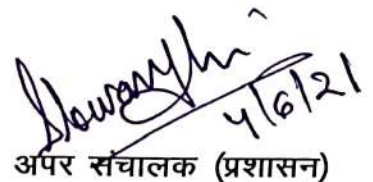 4/6/21
अपर संचालक (प्रशासन)